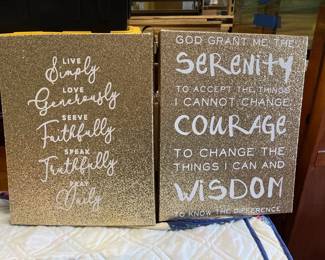 LIVE
Simply
LOVE
Generously
SEEVE
Faithfully
SPEAK
Truthfully
PRAY
Daily
GOD GRANT ME THE
SERENITY
TO ACCEPT THE THINGS
I CANNOT CHANGE,
COURAGE
TO CHANGE THE
THINGS I CAN AND
WISDOM
TO KNOW THE DIFFERENCE